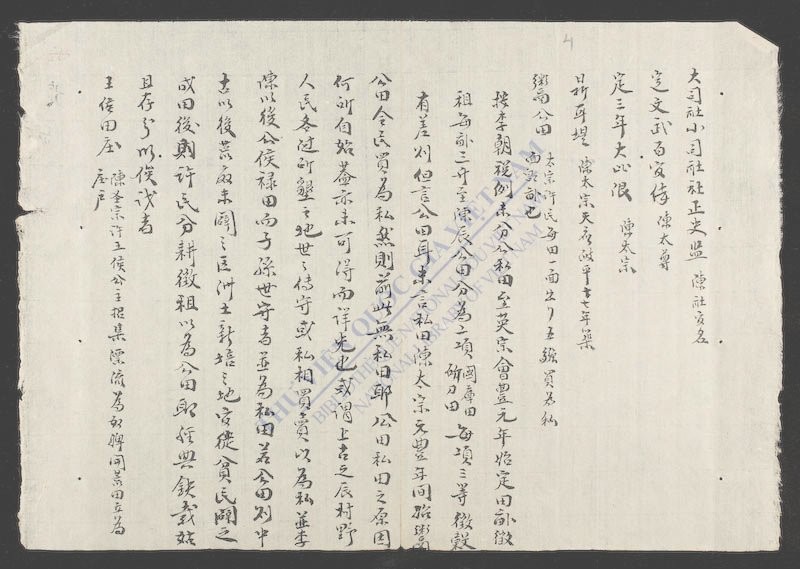 4
大司社小司社社正史監 陳社官名
定文武百官俸 陳太尊
定三年大比限 陳太宗
鬻公田 太宗許民每田一面出 五鏹買為私
按李朝税例未分公私田至英宗會豐元年始定田畝徵
租每畝三升至陳辰公田分為二項 國庫田 斫刀田 每項三等徵穀
有差別但言公田耳未言私田陳太宗元豐年間始鬻
公田令民買為私然則前此無私田耶 公田私田之原因
何所自始蓋亦未可得而詳究也或謂上古之辰村野
人民各随所墾之地世之傳守或私相買賣以為私並李
陳以後公侯禄田而子孫世守者並為私田若公田則中
古以後荒廢未闢之區洲土新培之地官徒貧民闢之
成田後則許民分耕徵租以為公田耶 經典缺載姑
且存為以俟識者
王侯田庄 陳圣宗許王侯公主招集漂流為奴婢開荒田立為
庄户
THƯ VIỆN QUỐC GIA VIỆT NAM
NATIONAL LIBRARY OF VIETNAM